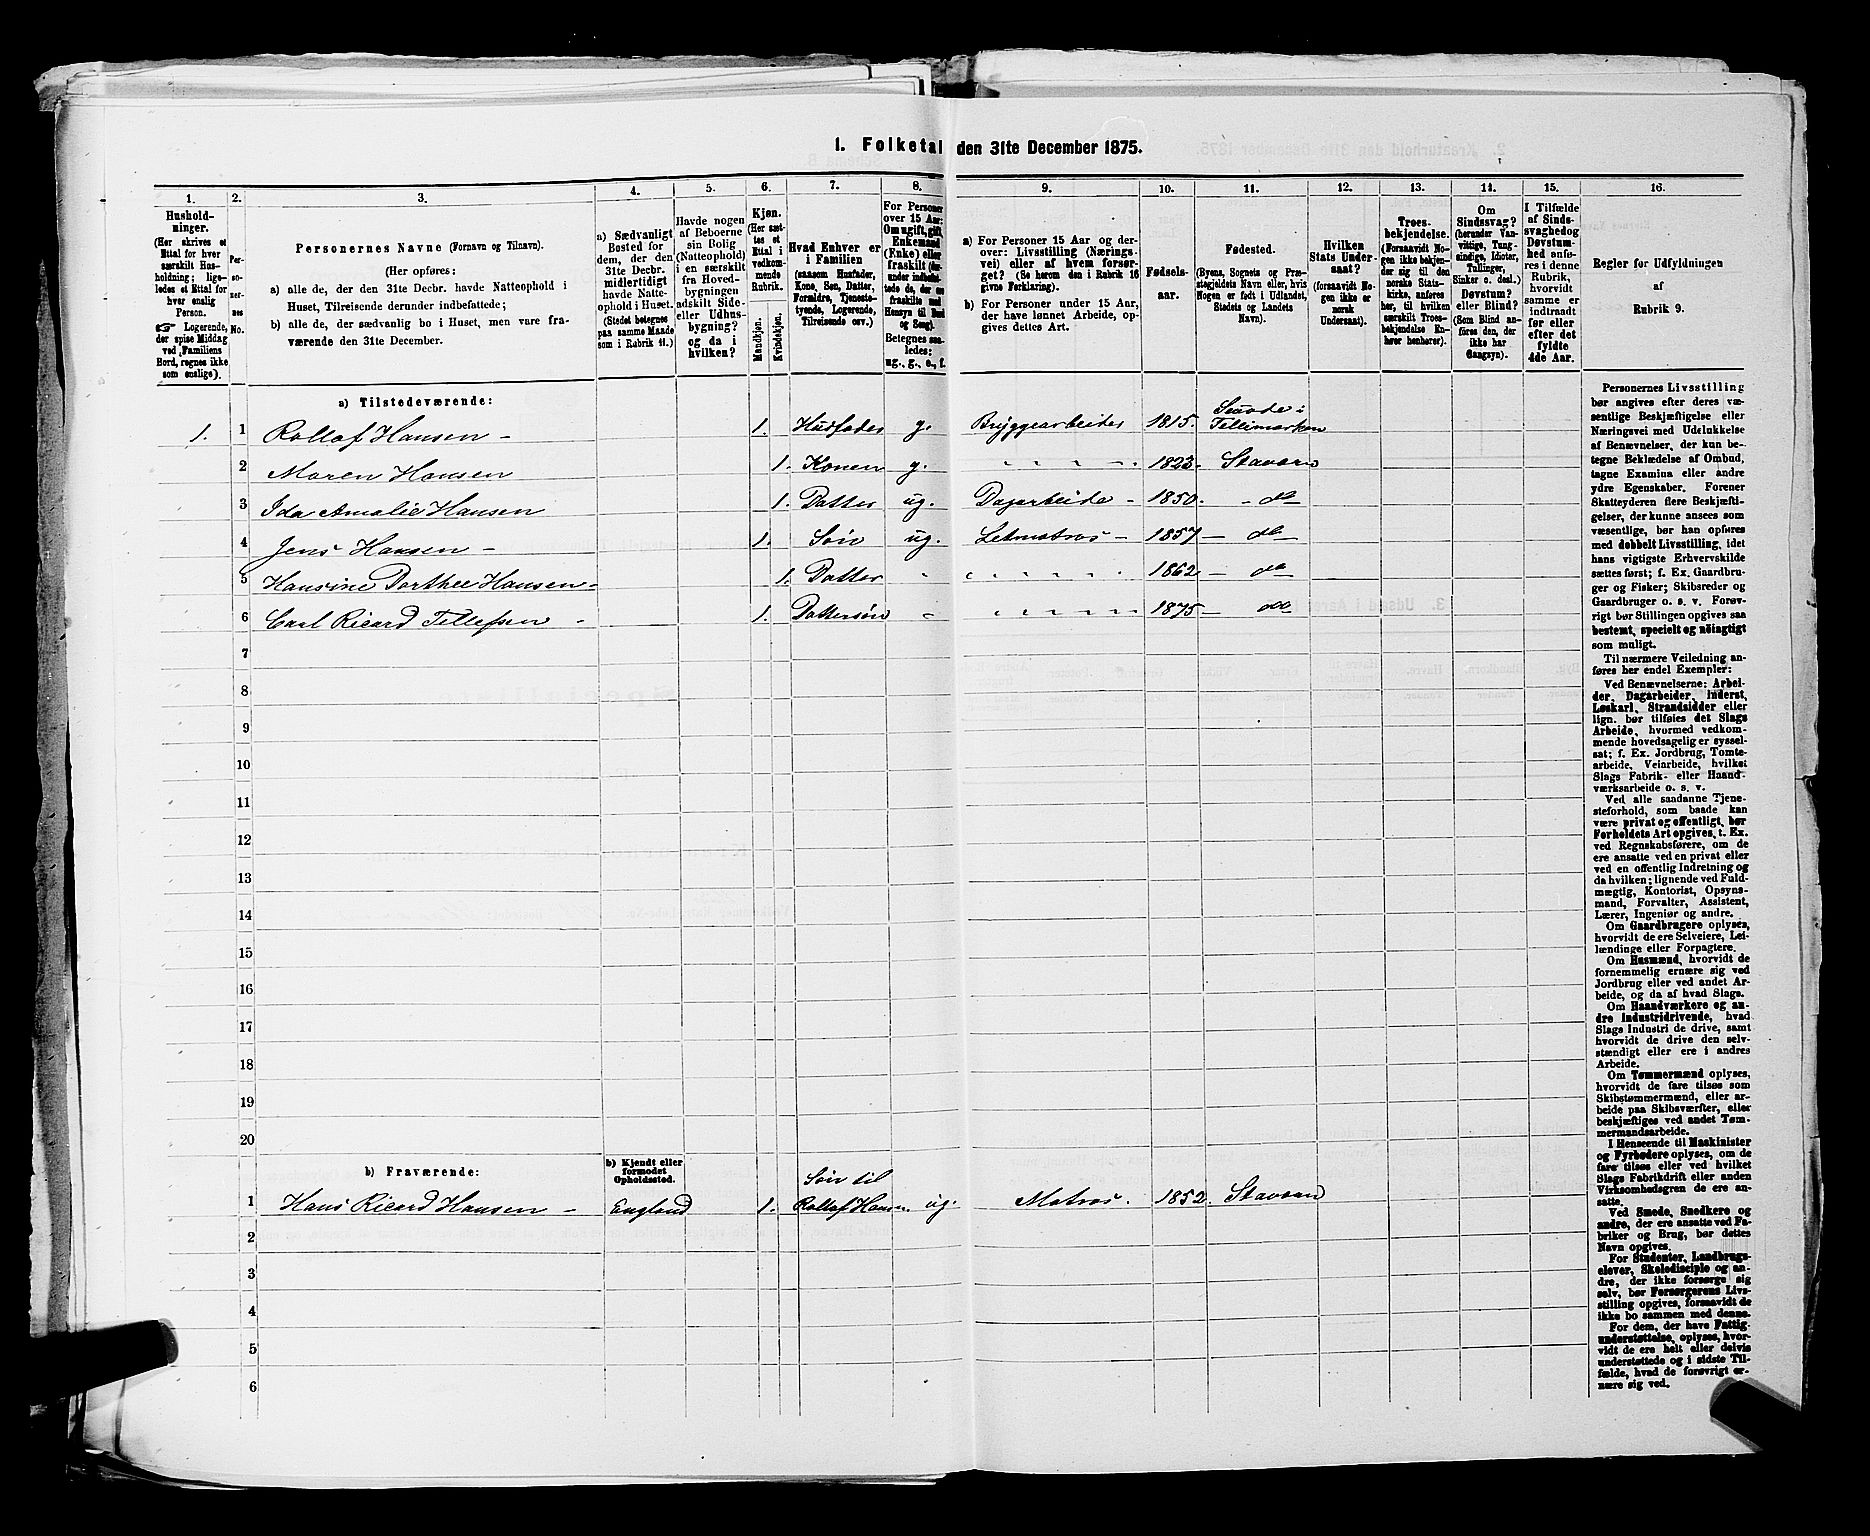 1. Folketal den 31te December 1875.
1. 2. 3. 4. 5. 6. 7. 8. 9. 10. 11. 12. 13. 14. 15. 16.
Hushold-
ninger.
(Her skrives et
Ettal for hver
særskilt Hus-
holdning; lige-
ledes et Ettal for
hver enslig
Person.
☞ Logerende,
der spise Middag
ved Familiens
Bord, regnes ikke
som enslige).
Per-
so-
ner-
nes
No.
Personernes Navne (Fornavn og Tilnavn).
(Her opføres:
a) alle de, der den 31te Decbr. havde Natteophold i
Huset, Tilreisende derunder indbefattede;
b) alle de, der sædvanlig bo i Huset, men vare fra-
værende den 31te December.
a) Sædvanligt
Bosted for
dem, der den
31te Decbr.
midlertidigt
havde Natte-
ophold i Huset.
(Stedet betegnes
paa samme Maade
som i Rubrik 11.)
Havde nogen
af Beboerne
sin Bolig
(Natteophold)
i en særskilt
fra Hoved-
bygningen
adskilt Side-
eller Udhus-
bygning?
og da i
hvilken?
Kjøn.
(Her sæt-
tes et
Ettal i
vedkom-
mende
Rubrik.
Mandkjøn.
Kvindekjøn.
Hvad Enhver er
i Familien
(saasom Husfader,
Kone, Søn, Datter,
Forældre, Tjeneste-
tyende, Logerende,
Tilreisende osv.)
For Personer
over 15 Aar:
Om ugift, gift,
Enkemand
(Enke) eller
fraskilt (der-
under indbefat-
tede de, der ere
fraskilte med
Hensyn til Bord
og Seng).
Betegnes saa-
ledes:
ug., g., e., f.
a) For Personer 15 Aar og der-
over: Livsstilling (Nærings-
vei) eller af hvem forsør-
get? (Se herom den i Rubrik 16
givne Forklaring).
b) For Personer under 15 Aar,
der have lønnet Arbeide, op-
gives dettes Art.
Fødsels-
aar.
Fødested.
(Byens, Sognets og Præ-
stegjeldets Navn eller, hvis
Nogen er født i Udlandet,
Stedets og Landets
Navn).
Hvilken
Stats Under-
saat?
(forsaavidt No-
gen ikke er
norsk
Undersaat).
Troes-
bekjendelse.
(Forsaavidt No-
gen ikke bekjen-
der sig til den
norske Stats-
kirke, anføres
her, til hvilken
særskilt Troes-
bekjendelse En-
hver henhører).
Om
Sindssvag?
(herunder Van-
vittige, Tung-
sindige, Idioter,
Tullinger,
Sinker o. desl.)
Døvstum?
eller Blind?
(Som Blind an-
føres den, der
ikke har
Gangsyn).
I Tilfælde
af Sinds-
svaghed og
Døvstum-
hed anfø-
res i denne
Rubrik,
hvorvidt
samme er
indtraadt
før eller
efter det
fyldte
4de Aar.
Regler for Udfyldningen
af
Rubrik 9.
a) Tilstedeværende:
1. 1 Rollof Hansen - 1. Husfader g. Bryggearbeider 1815. Tellimarken
2 Maren Hansen 1. Konen g. " " " " 1823. Staværn
3 Ida Amalie Hansen 1. Datter ug. Dagarbeide - 1850. - do
4 Jens Hansen - 1. Søn ug. Letmatros - 1857 - do
5 Hansine Dorthee Hansen - 1. Datter " " " " " 1862 - do
6 Carl Ricard Tellefsen - 1. Dattersøn " " " " " 1875 - do
7
8
9
10
11
12
13
14
15
16
17
18
19
20
b) Fraværende:
b) Kjendt eller
formodet
Opholdssted.
Søn til
1 Hans Ricard Hansen - England 1. Rollof Hansen ug. Matros. 1852. Staværn
2
3
4
5
6
Personernes Livsstilling
bør angives efter deres væ-
sentlige Beskjæftigelse eller
Næringsvei med Udelukkelse
af Benævnelser, der kun be-
tegne Beklædelse af Ombud,
tagne Examina eller andre
ydre Egenskaber. Forener
Skatteyderen flere Beskjæfti-
gelser, der kunne ansees som
væsentlige, bør han opføres
med dobbelt Livsstilling, idet
hans vigtigste Erhvervskilde
sættes først; f. Ex. Gaardbru-
ger og Fisker; Skibsreder og
Gaardbruger o. s. v. Forøv-
rigt bør Stillingen opgives saa
bestemt, specielt og nøiagtigt
som muligt.
Til nærmere Veiledning an-
føres her endel Exempler:
Ved Benævnelserne: Arbei-
der, Dagarbeider, Inderst,
Løskarl, Strandsidder eller
lign. bør tilføies det Slags
Arbeide, hvormed vedkom-
mende hovedsagelig er syssel-
sat; f. Ex. Jordbrug, Tomte-
arbeide, Veiarbeide, hvilket
Slags Fabrik- eller Haand-
værksarbeide o. s. v.
Ved alle saadanne Tjene-
steforhold, som baade kan
være privat og offentligt, bør
Forholdets Art opgives, t. Ex.
ved Regnskabsførere, om de
ere ansatte ved en privat eller
ved en offentlig Indretning og
da hvilken; lignende ved Fuld-
mægtig, Kontorist, Opsyns-
mand, Forvalter, Assistent,
Lærer, Ingeniør og andre.
Om Gaardbrugere oplyses,
hvorvidt de ere Selveiere, Lei-
lændinge eller Forpagtere.
Om Husmænd, hvorvidt de
fornemmelig ernære sig ved
Jordbrug eller ved andet Ar-
beide, og da af hvad Slags.
Om Haandværkere og an-
dre Industridrivende, hvad
Slags Industri de drive, samt
hvorvidt de drive den selv-
stændigt eller ere i andres
Arbeide.
Om Tømmermænd oplyses,
hvorvidt de fare tilsøs som
Skibstømmermænd, eller ar-
beide paa Skibsværfter, eller
beskjæftiges ved andet Tøm-
mermandsarbeide.
I Henseende til Maskinister
og Fyrbødere oplyses, om de
fare tilsøs eller ved hvilket
Slags Fabrikdrift eller anden
Virksomhedsgren de ere an-
satte.
Ved Smede, Snedkere og
andre, der ere ansatte ved Fa-
briker og Brug, bør dettes
Navn opgives.
For Studenter, Landbrugs-
elever, Skoledisciple og an-
dre, der ikke forsørge sig
selv, bør Forsørgerens Livs-
stilling opgives, forsaavidt de
ikke bo sammen med denne.
For dem, der have Fattig-
understøttelse, oplyses, hvor-
vidt de ere helt eller delvis
understøttede og i sidste Til-
fælde, hvad de forøvrigt er-
nære sig ved.